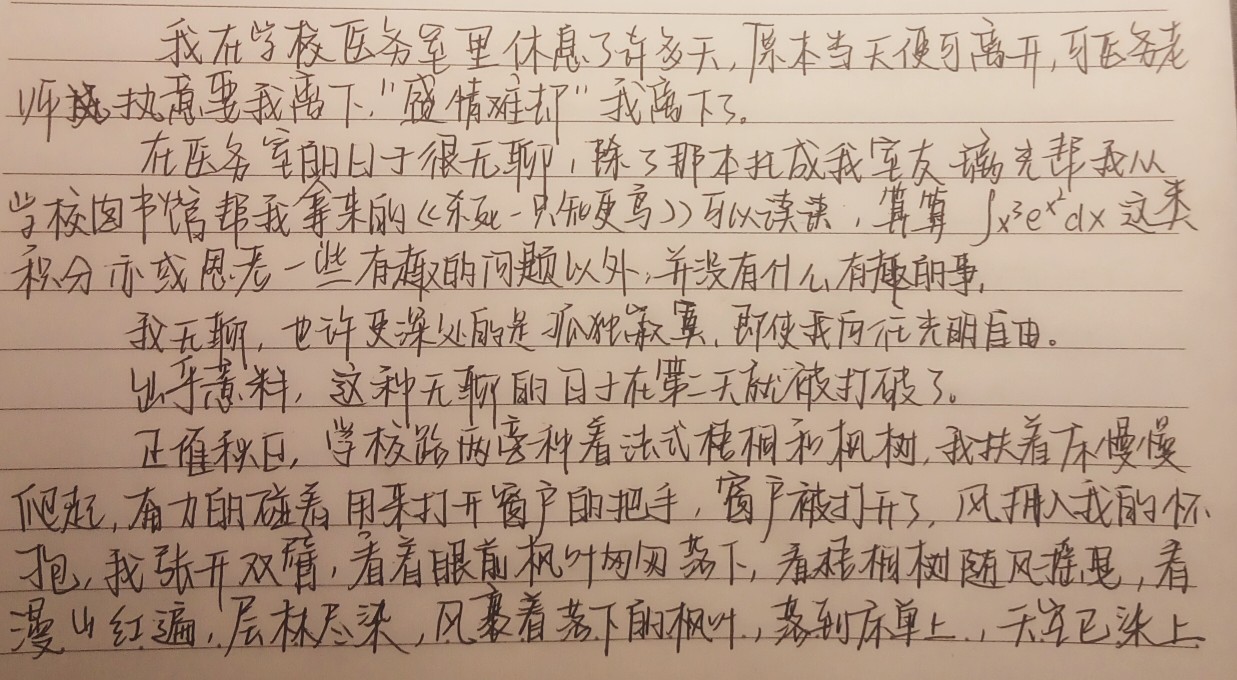 我在学校医务室里休息了许多天，原本当天便可离开，可医务老
师执意要我离下，“盛情难却”我离下了。
在医务室的日子很无聊，除了那本扎成我室友 帮我从
学校图书馆帮我拿来的《杀死一只知更鸟》可以读读，算算 ∫x³eˣ²dx 这类
积分亦或思考一些有趣的问题以外，并没有什么有趣的事。
我无聊，也许更深处的是孤独寂寞，即使我向往光明自由。
出乎意料，这种无聊的日子在第二天就被打破了。
正值秋日，学校路两旁种着法式梧桐和枫树，我扶着床慢慢
爬起，奋力的碰着用来打开窗户的把手，窗户被打开了，风拥入我的怀
抱，我张开双臂，看着眼前枫叶匆匆落下，看梧桐树随风摇晃，看
漫山红遍，层林尽染，风裹着落下的枫叶，落到床单上，天空已染上